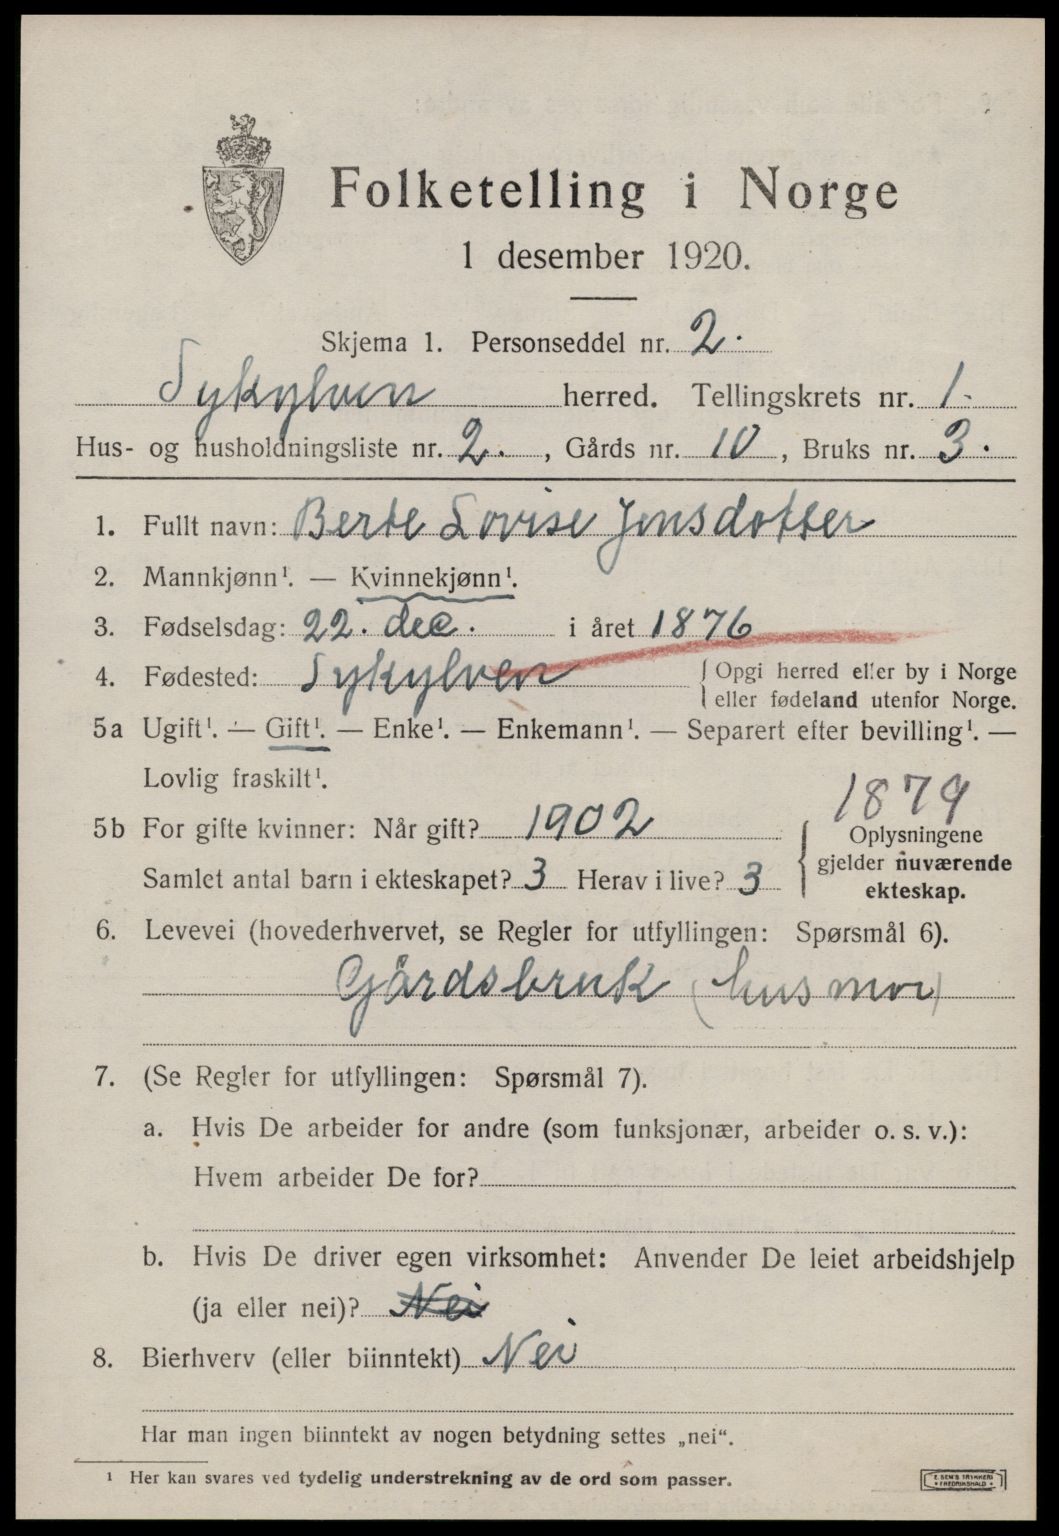 Folketelling i Norge
1 desember 1920.
Skjema 1. Personseddel nr. 2.
Sykylven herred. Tellingskrets nr. 1.
Hus- og husholdningsliste nr. 2., Gårds nr. 10, Bruks nr. 3.
1. Fullt navn: Berte Lovise Jonsdotter
2. Mannkjønn¹. — Kvinnekjønn¹.
3. Fødselsdag: 22. dec. i året 1876
4. Fødested: Sykylven { Opgi herred eller by i Norge
eller fødeland utenfor Norge.
5a Ugift¹. — Gift¹. — Enke¹. — Enkemann¹. — Separert efter bevilling¹. —
Lovlig fraskilt¹.
1879
5b For gifte kvinner: Når gift? 1902 { Oplysningene
gjelder nuværende
Samlet antal barn i ekteskapet? 3 Herav i live? 3 ekteskap.
6. Levevei (hovederhvervet, se Regler for utfyllingen: Spørsmål 6).
Gårdsbruk (husmor)
7. (Se Regler for utfyllingen: Spørsmål 7).
a. Hvis De arbeider for andre (som funksjonær, arbeider o. s. v.):
Hvem arbeider De for?
b. Hvis De driver egen virksomhet: Anvender De leiet arbeidshjelp
(ja eller nei)? Nei
8. Bierhverv (eller biinntekt) Nei
Har man ingen biinntekt av nogen betydning settes „nei“.
¹ Her kan svares ved tydelig understrekning av de ord som passer.
E. SEM'S TRYKKERI
FREDRIKSHALD